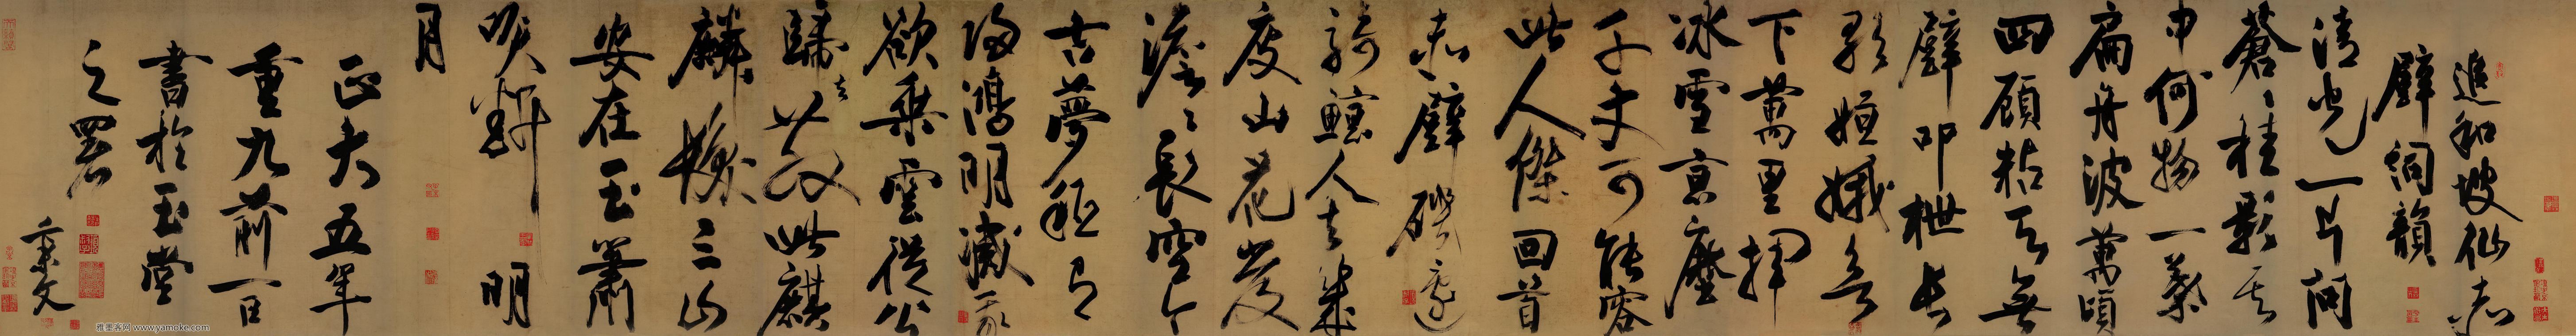 追和坡仙赤
壁詞韻
清光一片問
蒼〻桂影其
中何物一葉
扁舟波萬頃
四顧粘天無
壁叩枻長
歌姮娥欲
下萬里揮
冰雪京塵
千丈可能容
此人傑回首
赤壁磯邊
騎鯨人去幾
度山花發
澹〻長空今
古夢秖有
歸鴻明滅我
欲乘雲從公
歸去散此麒
麟髮三山
安在玉簫
吹斷明
月
正大五年
重九前一日
書於玉堂
之署
秉文
雅墨客网 www.yamoke.com